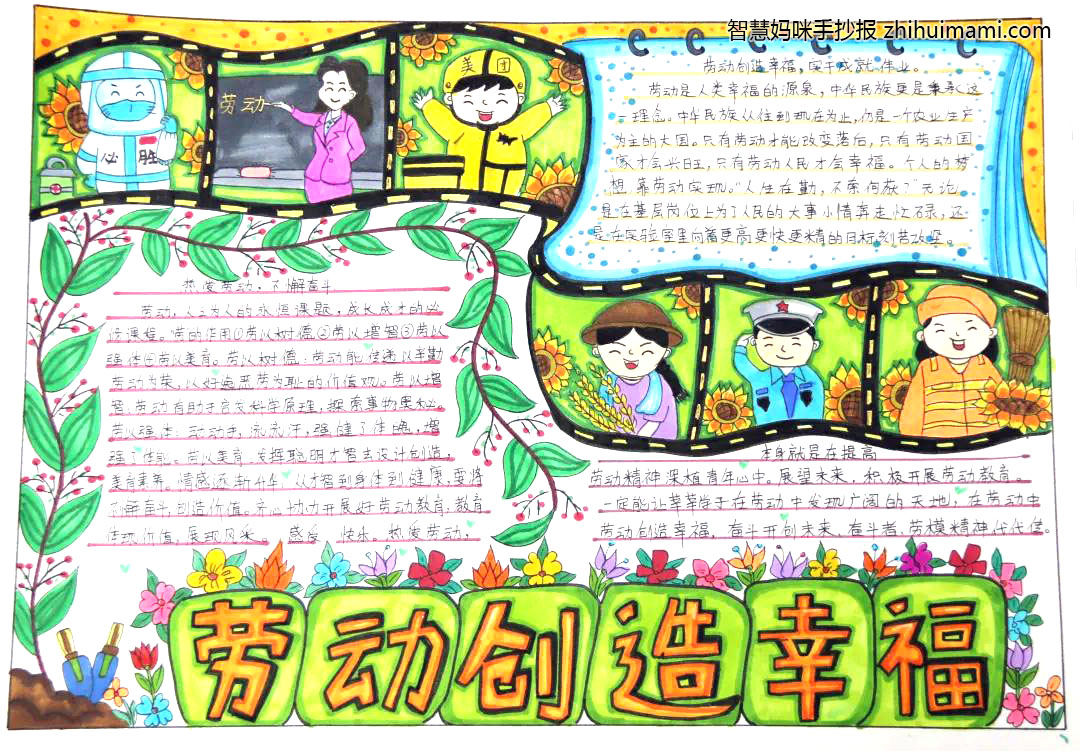 智慧妈咪手抄报 zhihuimami.com
美团
劳动
必胜
劳动创造幸福，实干成就伟业。
劳动是人类幸福的源泉，中华民族更是秉承这
一理念。中华民族从往到现在为止，仍是一个农业生产
为主的大国。只有劳动才能改变落后，只有劳动国
家才会兴旺，只有劳动人民才会幸福。个人的梦
想，靠劳动实现。“人生在勤，不索何获？”无论
是在基层岗位上为了人民的大事小情奔走忙碌，还
是在实验室里向着更高更快更精的目标刻苦攻坚。
热爱劳动，不懈奋斗
劳动，人之为人的永恒课题，成长成才的必
修课程。劳的作用①劳以树德②劳以增智③劳以
强体④劳以美育。劳以树德：劳动能传递以辛勤
劳动为荣，以好逸恶劳为耻的价值观。劳以增
智，劳动有助于启发科学原理，探索事物奥秘。
劳以强体：动动手，流流汗，强健了体魄，增
强了体能。劳以美育，发挥聪明才智去设计创造，
美育素养。情感逐渐升华，从才智到身体到健康，要将
不懈奋斗，创造价值。齐心协力开展好劳动教育，教育
体现价值，展现风采。感受 快乐。热爱劳动，
本身就是在提高
劳动精神深植青年心中。展望未来，积极开展劳动教育。
一定能让莘莘学子在劳动中发现广阔的天地，在劳动中
劳动创造幸福，奋斗开创未来，奋斗者，劳模精神代代传。
劳动创造幸福